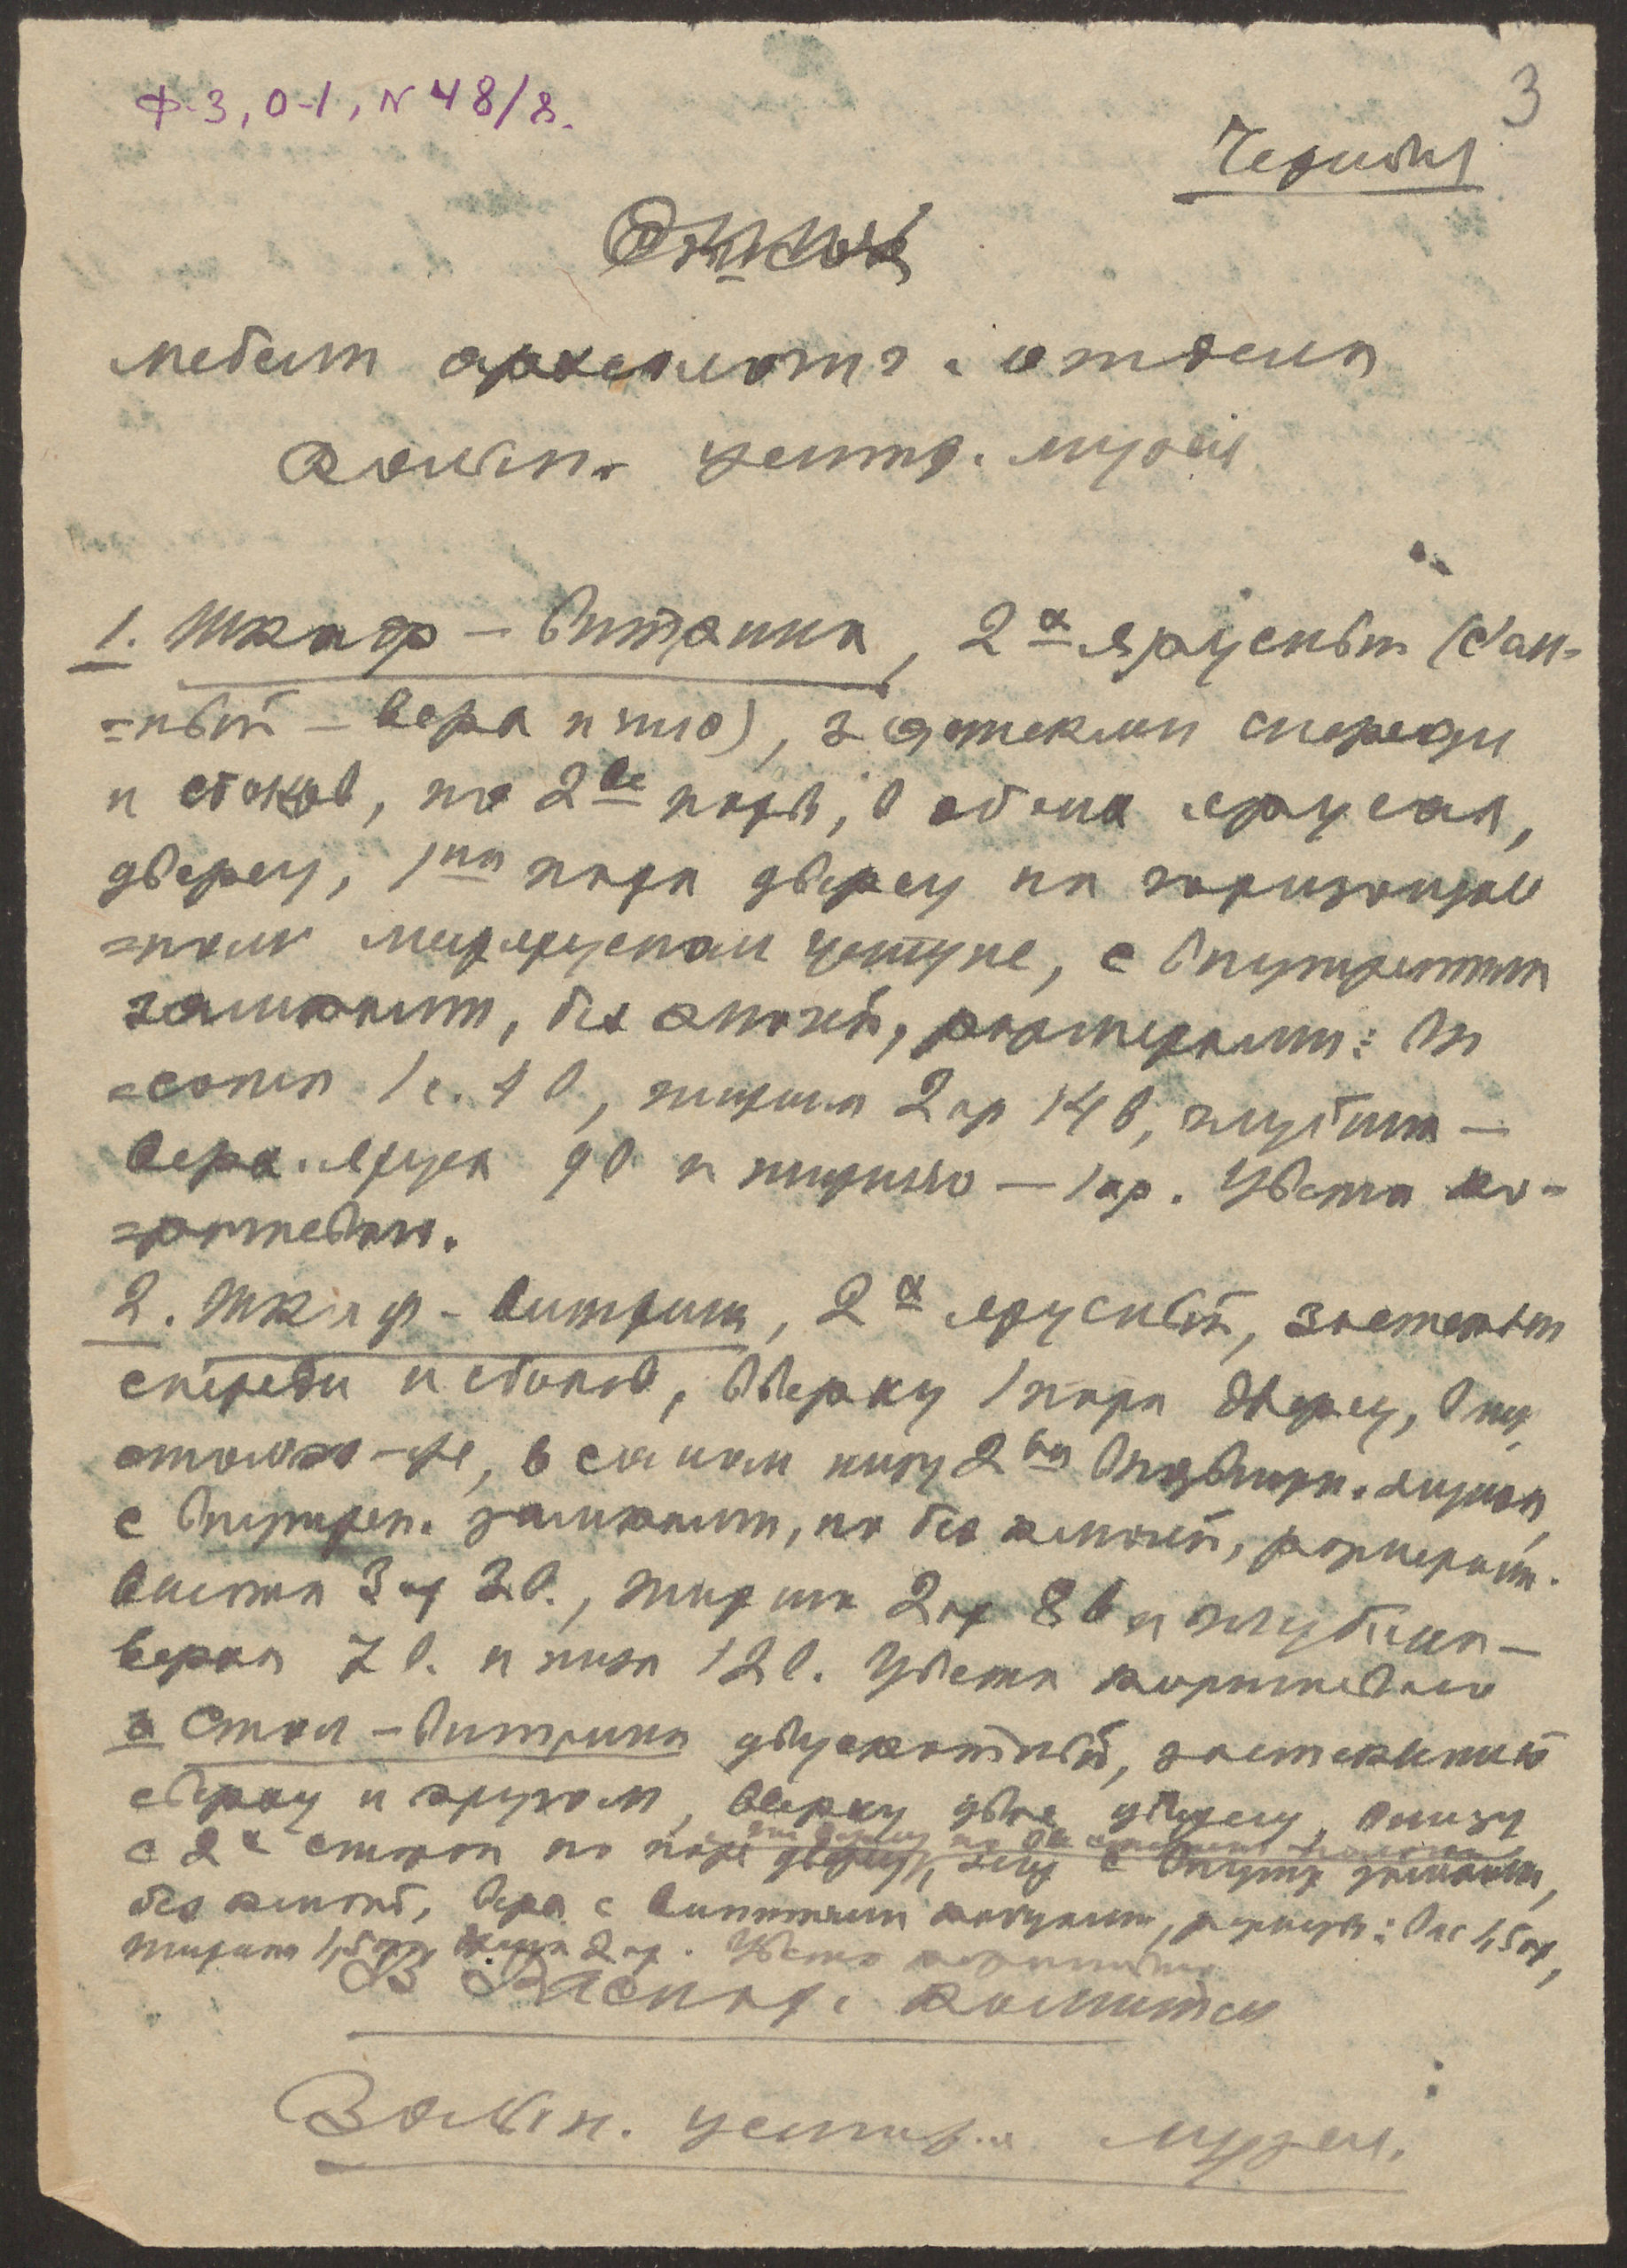 Ф-3, О-1, N 48/8.
3
Черновик
Опись
мебели археологич. отдела
Волын. центр. музея
1. Шкаф-витрина, 2х ярусный (слит-
=ный - верх и низ), застеклен спереди
и с боков, по 2ве пары, в обоих ярусах,
дверец, 1на пара дверец на горизонталь
=ном межярусном уступе, с внутренними
замками, без ключей, размерами: вы
=сота 1с. 4 в, ширина 2 ар 14 в, глубина —
верх. яруса 9 в и нижняго — 1 ар. Цвета ко-
=ричневаго.
2. Шкаф-витрина, 2х ярусный, застеклен
спереди и с боков, вверху 1 пара дверец, внизу
столько-же, в самом низу 2ва выдвижн. ящика,
с внутрен. замками, но без ключей, размерами.
высота 3 ар 3 в., ширина 2 ар 8 в и глубина —
верха 7 в. и низа 12 в. Цвета коричневаго
3 Стол-витрина двускатный, застекленный
сверху и кругом, вверху две дверцы, внизу
с 2х сторон по паре дверец, с внутр замками,
без ключей, верх с винтами, размеры: выс 1,5 ар,
ширина 1,5 ар, длина 2 ар. Цвета коричневаго
В комитет
Волын. центр. музея.